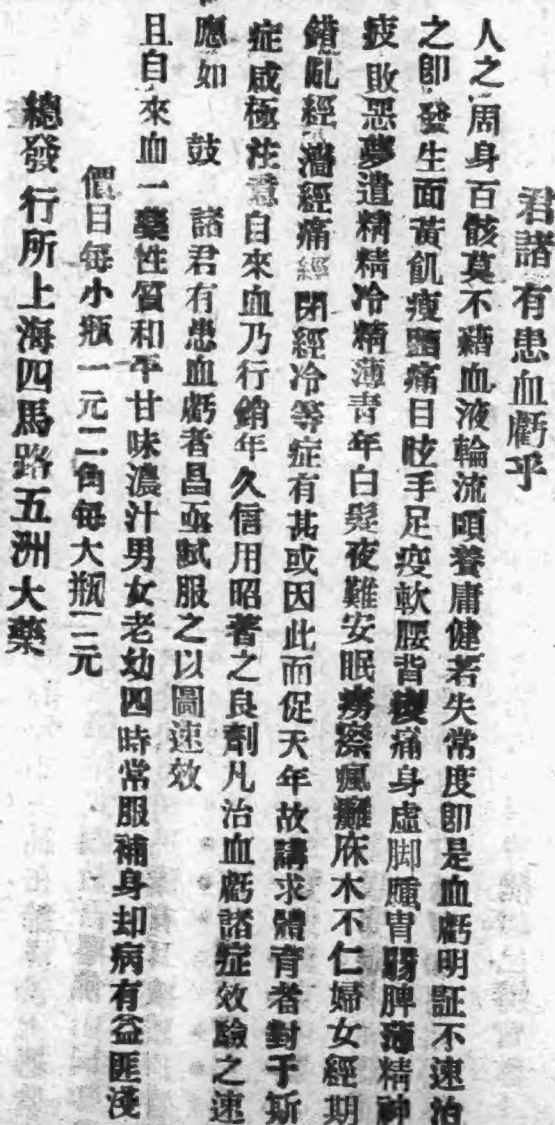 君諸有患血虧乎
人之周身百骸莫不藉血液輪流頤養庸健若失常度卽是血虧明証不速治
之卽發生面黃飢瘦頭痛目眩手足痠軟腰背痠痛身虛脚腫胃弱脾薄精神
疲敗惡夢遺精精冷精薄靑年白髮夜難安眠癆瘵瘋癱麻木不仁婦女經期
錯亂經濇經痛經閉經冷等症有甚或因此而促天年故講求體育者對于斯
症咸極注意自來血乃行銷年久信用昭著之良劑凡治血虧諸症效驗之速
應如 鼓 諸君有患血虧者曷亟試服之以圖速效
且自來血一藥性質和平甘味濃汁男女老幼四時常服補身却病有益匪淺
價目每小瓶一元二角每大瓶二元
總發行所上海四馬路五洲大藥